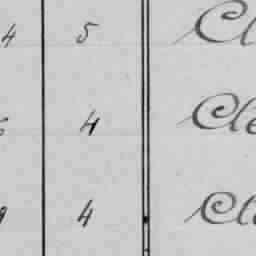 4 5 Cl
4 Cle
4 Cle